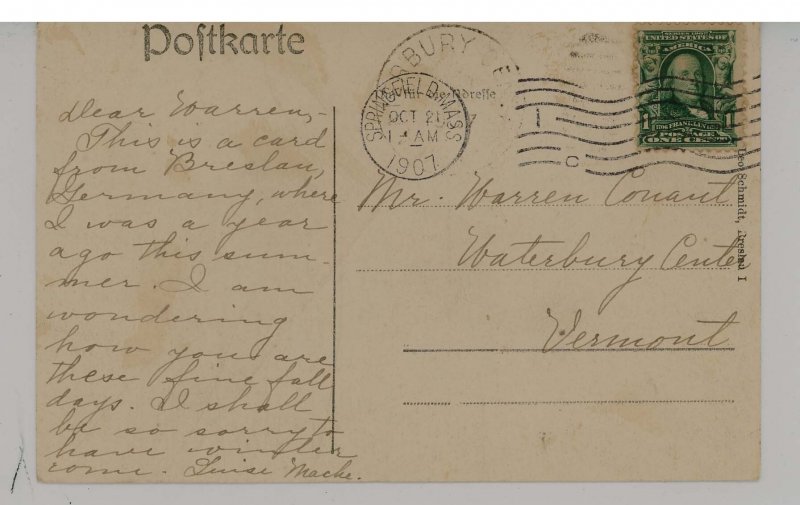 Postkarte
Dear Warren,-
This is a card
from Breslau,
Germany, where
I was a year
ago this sum-
mer. I am
wondering
how you are
these fine fall
days. I shall
be so sorry to
have winter
come. Luise
SPRINGFIELD, MASS.
OCT 21
1 AM
1907
für die Adresse
SERIES 1902
UNITED STATES OF
AMERICA
1 FRANKLIN 1
POSTAGE
ONE CENT
Mr. Warren Conant
Waterbury Center
Vermont
Schmidt, Breslau I